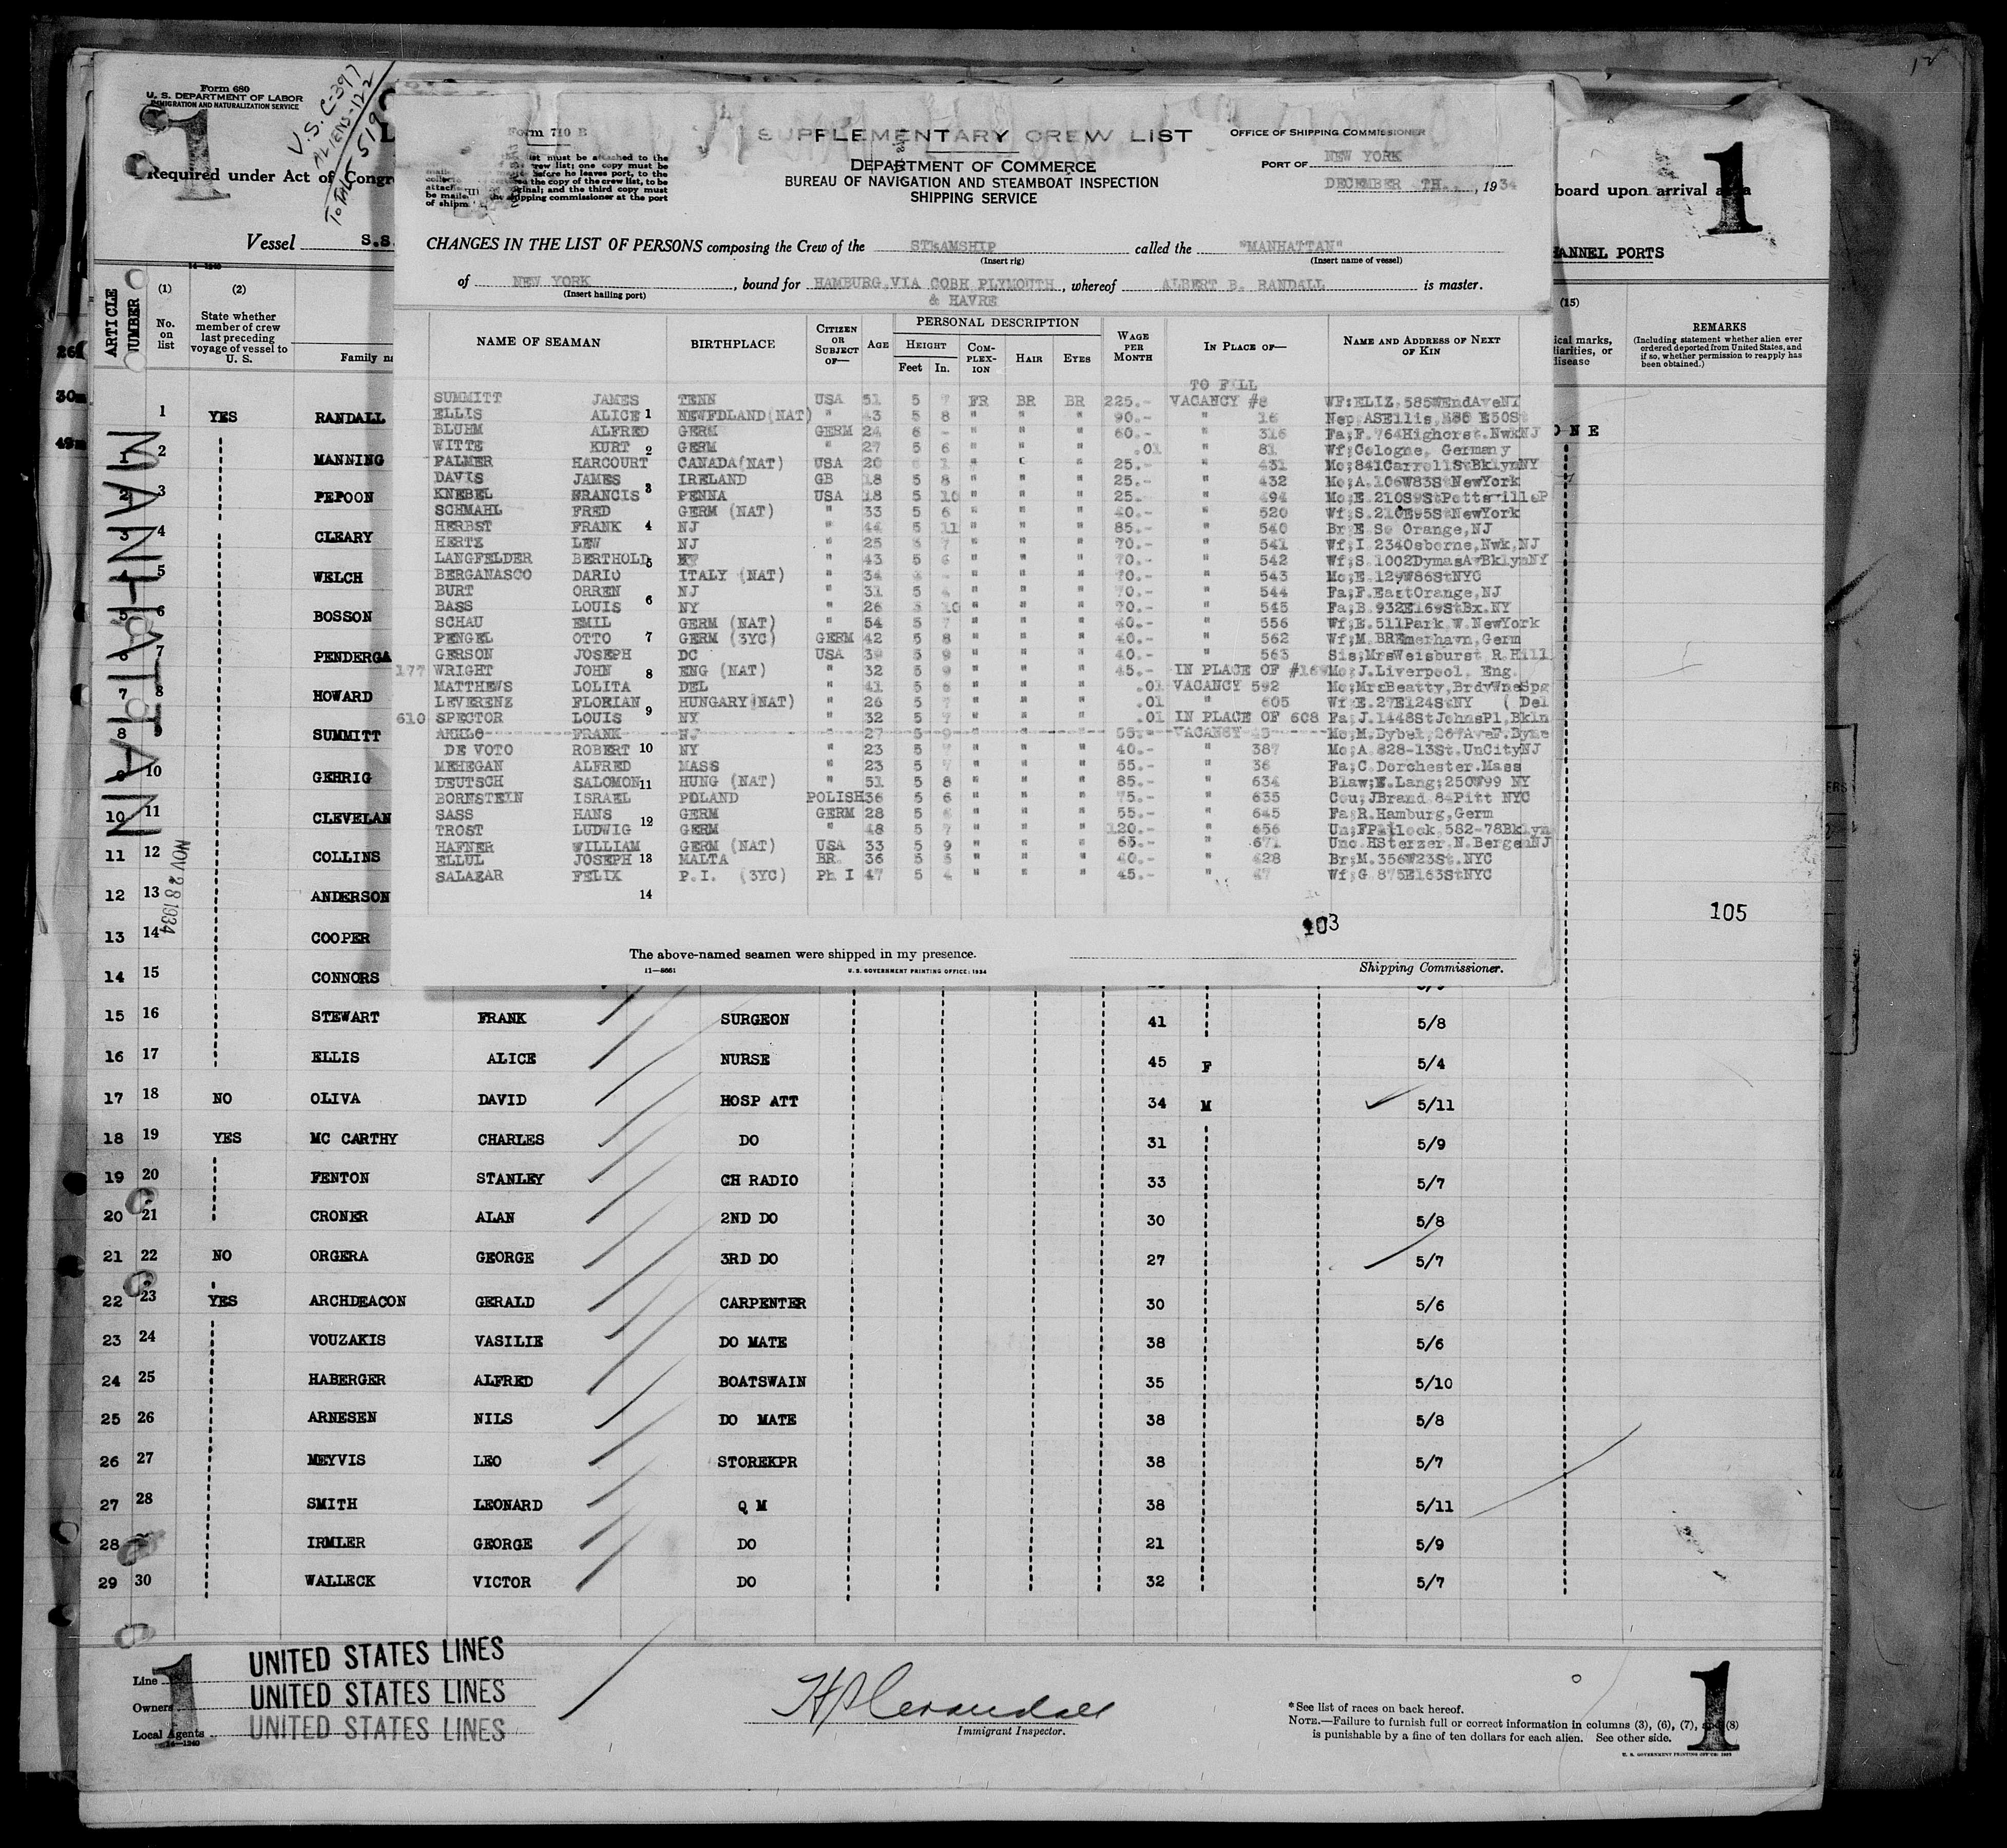 Form 680
U. S. DEPARTMENT OF LABOR
IMMIGRATION AND NATURALIZATION SERVICE
1
U.S.C-397
ALIENS-122
TOTAL 519
Required under Act of Congre
Vessel S.S.
board upon arrival at a
1
HANNEL PORTS
Form 710 B
SUPPLEMENTARY CREW LIST
DEPARTMENT OF COMMERCE
BUREAU OF NAVIGATION AND STEAMBOAT INSPECTION
SHIPPING SERVICE
OFFICE OF SHIPPING COMMISSIONER
PORT OF NEW YORK
DECEMBER 4TH., 1934
must be attached to the
crew list; one copy must be
before he leaves port, to the
the copy of the crew list, to be
original; and the third copy must
be mailed the shipping commissioner at the port
of shipm
CHANGES IN THE LIST OF PERSONS composing the Crew of the STEAMSHIP called the "MANHATTAN"
(Insert rig) (Insert name of vessel)
of NEW YORK, bound for HAMBURG VIA COBH PLYMOUTH, whereof ALBERT B. RANDALL is master.
(Insert hailing port) & HAVRE
NAME OF SEAMAN BIRTHPLACE CITIZEN OR SUBJECT OF— AGE PERSONAL DESCRIPTION HEIGHT Feet In. COMPLEXION HAIR EYES WAGE PER MONTH IN PLACE OF— NAME AND ADDRESS OF NEXT OF KIN
TO FILL
SUMMITT JAMES TENN USA 51 5 7 FR BR BR 225.- VACANCY #8 WF:ELIZ,585WEndAveNY
ELLIS ALICE 1 NEWFDLAND(NAT) " 43 5 8 " " " 90.- " 16 Nep,ASEllis, E50St
BLUHM ALFRED GERM GERM 24 6 - " " " 60.- " 316 Fa;F.764Highorst.NwkNJ
WITTE KURT 2 GERM " 27 5 6 " " " .01 " 81 Wf;Cologne, Germany
PALMER HARCOURT CANADA(NAT) USA 20 6 1 " " " 25.- " 431 Mo;841CarrollStBklynNY
DAVIS JAMES IRELAND GB 18 5 8 " " " 25.- " 432 Mo;A.106W83StNewYork
KNEBEL FRANCIS 3 PENNA USA 18 5 10 " " " 25.- " 494 Mo;E.210S9StPottsvilleP
SCHMAHL FRED GERM (NAT) " 33 5 6 " " " 40.- " 520 Wf;S.210E95StNewYork
HERBST FRANK 4 NJ " 44 5 11 " " " 85.- " 540 Br;E.So Orange,NJ
HERTZ LEW NJ " 25 5 7 " " " 70.- " 541 Wf;I 234Osborne,Nwk,NJ
LANGFELDER BERTHOLD 5 NY " 43 5 6 " " " 70.- " 542 Wf;S.1002DymasAvBklynNY
BERGANASCO DARIO ITALY (NAT) " 34 " " " 70.- " 543 Mo;E.129W86StNYC
BURT ORREN NJ " 31 5 " " " 70.- " 544 Fa;F.EastOrange,NJ
BASS LOUIS 6 NY " 26 5 10 " " " 70.- " 545 Fa;B.932E169StBx.NY
SCHAU EMIL GERM (NAT) " 54 5 7 " " " 40.- " 556 Wf;E.511Park W.NewYork
PENGEL OTTO 7 GERM (3YC) GERM 42 5 8 " " " 40.- " 562 Wf;M.BREmerhavn,Germ
GERSON JOSEPH DC USA 39 5 9 " " " 40.- " 563 Sis;MrsWeisburst R.Hill
177 WRIGHT JOHN 8 ENG (NAT) " 32 5 9 " " " 45.- IN PLACE OF #169 Mo;J.Liverpool. Eng.
MATTHEWS LOLITA DEL " 41 5 6 " " " .01 VACANCY 592 Mo;MrsBeatty,BrdyWneSpg
LEVERENZ FLORIAN HUNGARY(NAT) " 26 5 7 " " " .01 " 605 Wf;E.27E124StNY ( Del
610 SPECTOR LOUIS 9 NY " 32 5 7 " " " .01 IN PLACE OF 608 Fa;J.1448StJohnsPl,Bkln
FRANK NJ " 27 5 9 " " " 55.- VACANCY 45 Mo;M.Dybel,267AveF.Byne
DE VOTO ROBERT 10 NY " 23 5 7 " " " 40.- " 387 Mo;A.828-13St.UnCityNJ
MEHEGAN ALFRED MASS " 23 5 7 " " " 55.- " 36 Fa;C.Dorchester.Mass
DEUTSCH SALOMON 11 HUNG (NAT) " 51 5 8 " " " 85.- " 634 Blaw;E.Lang;250W99 NY
BORNSTEIN ISRAEL POLAND POLISH 36 5 6 " " " 75.- " 635 Cou;JBrand 84Pitt NYC
SASS HANS 12 GERM GERM 28 5 6 " " " 55.- " 645 Fa;R.Hamburg,Germ
TROST LUDWIG GERM " 48 5 7 " " " 120.- " 656 Un;FPallock,582-78Bklyn
HAFNER WILLIAM GERM (NAT) USA 33 5 9 " " " 55.- " 671 Unc.HSterzer.N.BergenNJ
ELLUL JOSEPH 13 MALTA BR. 36 5 5 " " " 40.- " 428 Br;M.356W23St.NYC
SALAZAR FELIX P.I. (3YC) Ph I 47 5 4 " " " 45.- " 47 Wf;G 875E163StNYC
14
103
The above-named seamen were shipped in my presence.
11—8661 U. S. GOVERNMENT PRINTING OFFICE: 1934 Shipping Commissioner.
14—1240
ARTICLE NUMBER
(1) No. on list
(2) State whether member of crew last preceding voyage of vessel to U. S.
Family na
(15)
ical marks,
liarities, or
disease
REMARKS
(Including statement whether alien ever ordered deported from United States, and if so, whether permission to reapply has been obtained.)
MANHATTAN
NOV 28 1934
O N E
105
1 YES RANDALL
1 2 MANNING
2 3 PEPOON
3 4 CLEARY
4 5 WELCH
5 6 BOSSON
6 7 PENDERGA
7 8 HOWARD
8 9 SUMMITT
9 10 GEHRIG
10 11 CLEVELAN
11 12 COLLINS
12 13 ANDERSON
13 14 COOPER
14 15 CONNORS
15 16 STEWART FRANK SURGEON 41 5/8
16 17 ELLIS ALICE NURSE 45 F 5/4
17 18 NO OLIVA DAVID HOSP ATT 34 M 5/11
18 19 YES MC CARTHY CHARLES DO 31 5/9
19 20 FENTON STANLEY CH RADIO 33 5/7
20 21 CRONER ALAN 2ND DO 30 5/8
21 22 NO ORGERA GEORGE 3RD DO 27 5/7
22 23 YES ARCHDEACON GERALD CARPENTER 30 5/6
23 24 VOUZAKIS VASILIE DO MATE 38 5/6
24 25 HABERGER ALFRED BOATSWAIN 35 5/10
25 26 ARNESEN NILS DO MATE 38 5/8
26 27 MEYVIS LEO STOREKPR 38 5/7
27 28 SMITH LEONARD Q M 38 5/11
28 IRMLER GEORGE DO 21 5/9
29 30 WALLECK VICTOR DO 32 5/7
Line UNITED STATES LINES
Owners UNITED STATES LINES
Local Agents UNITED STATES LINES
14—1240
1
Immigrant Inspector.
*See list of races on back hereof.
NOTE.—Failure to furnish full or correct information in columns (3), (6), (7), and (8)
is punishable by a fine of ten dollars for each alien. See other side.
U. S. GOVERNMENT PRINTING OFFICE
1